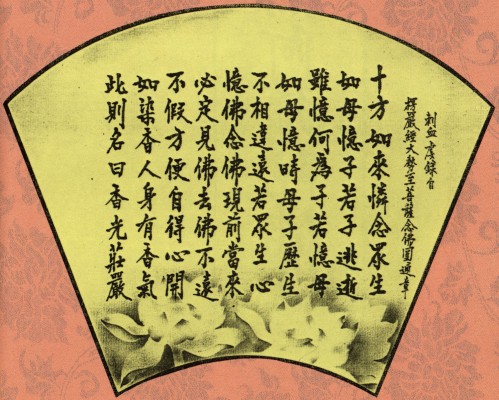 刺血虔錄自
楞嚴經大勢至菩薩念佛圓通章
十方如來憐念眾生
如母憶子若子逃逝
雖憶何為子若憶母
如母憶時母子歷生
不相違遠若眾生心
憶佛念佛現前當來
必定見佛去佛不遠
不假方便自得心開
如染香人身有香氣
此則名曰香光莊嚴